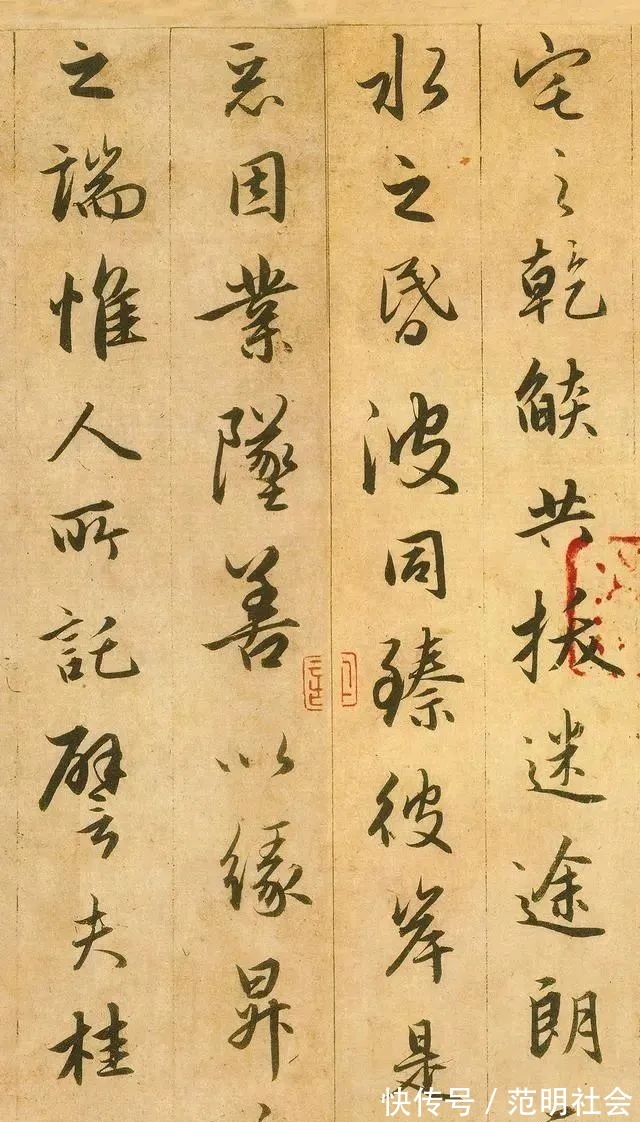 宅之乾燄共拔迷途朗
水之昏波同臻彼岸是
惡因業墜善以緣昇
之端惟人所託譬夫桂
快传号 / 范明社会